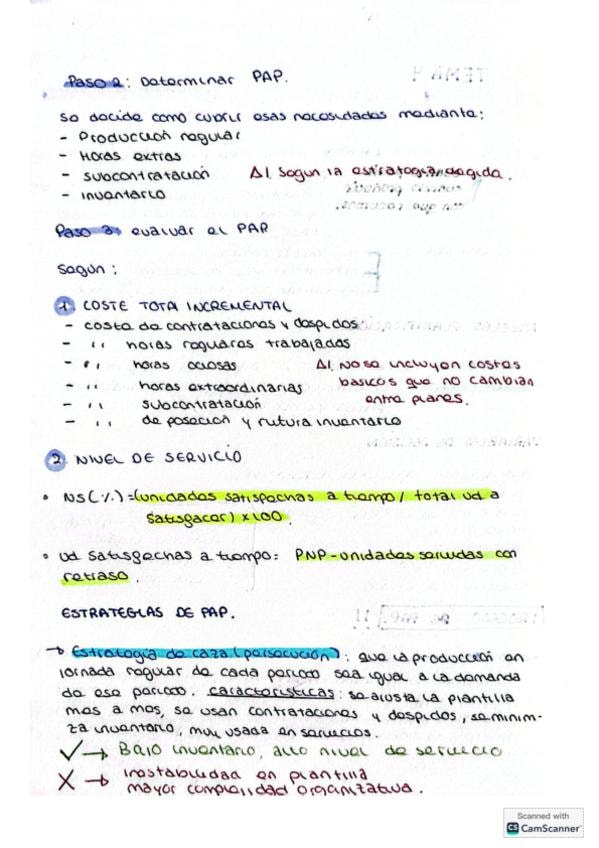 Paso 2: Determinar PAP.
Se decide como cubrir esas necesidades mediante:
- Producción regular
- Horas extras
- subcontratación
⚠! Segun la estrategia elegida.
- inventario
Paso 3: evaluar el PAP
Según:
1. COSTE TOTAL INCREMENTAL
- coste de contrataciones y despidos
- '' horas regulares trabajadas
- '' horas ociosas
- '' horas extraordinarias
- '' subcontratación
- '' de posesión y rutura inventario
⚠! No se incluyen costes
basicos que no cambian
entre planes.
2. NIVEL DE SERVICIO
• NS(%) = (unidades satisfechas a tiempo / total ud a
satisfacer) x 100.
• ud satisfechas a tiempo: PNP - unidades servidas con
retraso.
ESTRATEGIAS DE PAP.
→ Estrategia de caza (persecución): que la producción en
jornada regular de cada periodo sea igual a la demanda
de ese periodo. características: se ajusta la plantilla
mes a mes, se usan contrataciones y despidos, se minim-
za inventario, muy usada en servicios.
✓ → Bajo inventario, alto nivel de servicio
X → inestabilidad en plantilla
mayor complejidad organizativa.
Scanned with
CS CamScanner